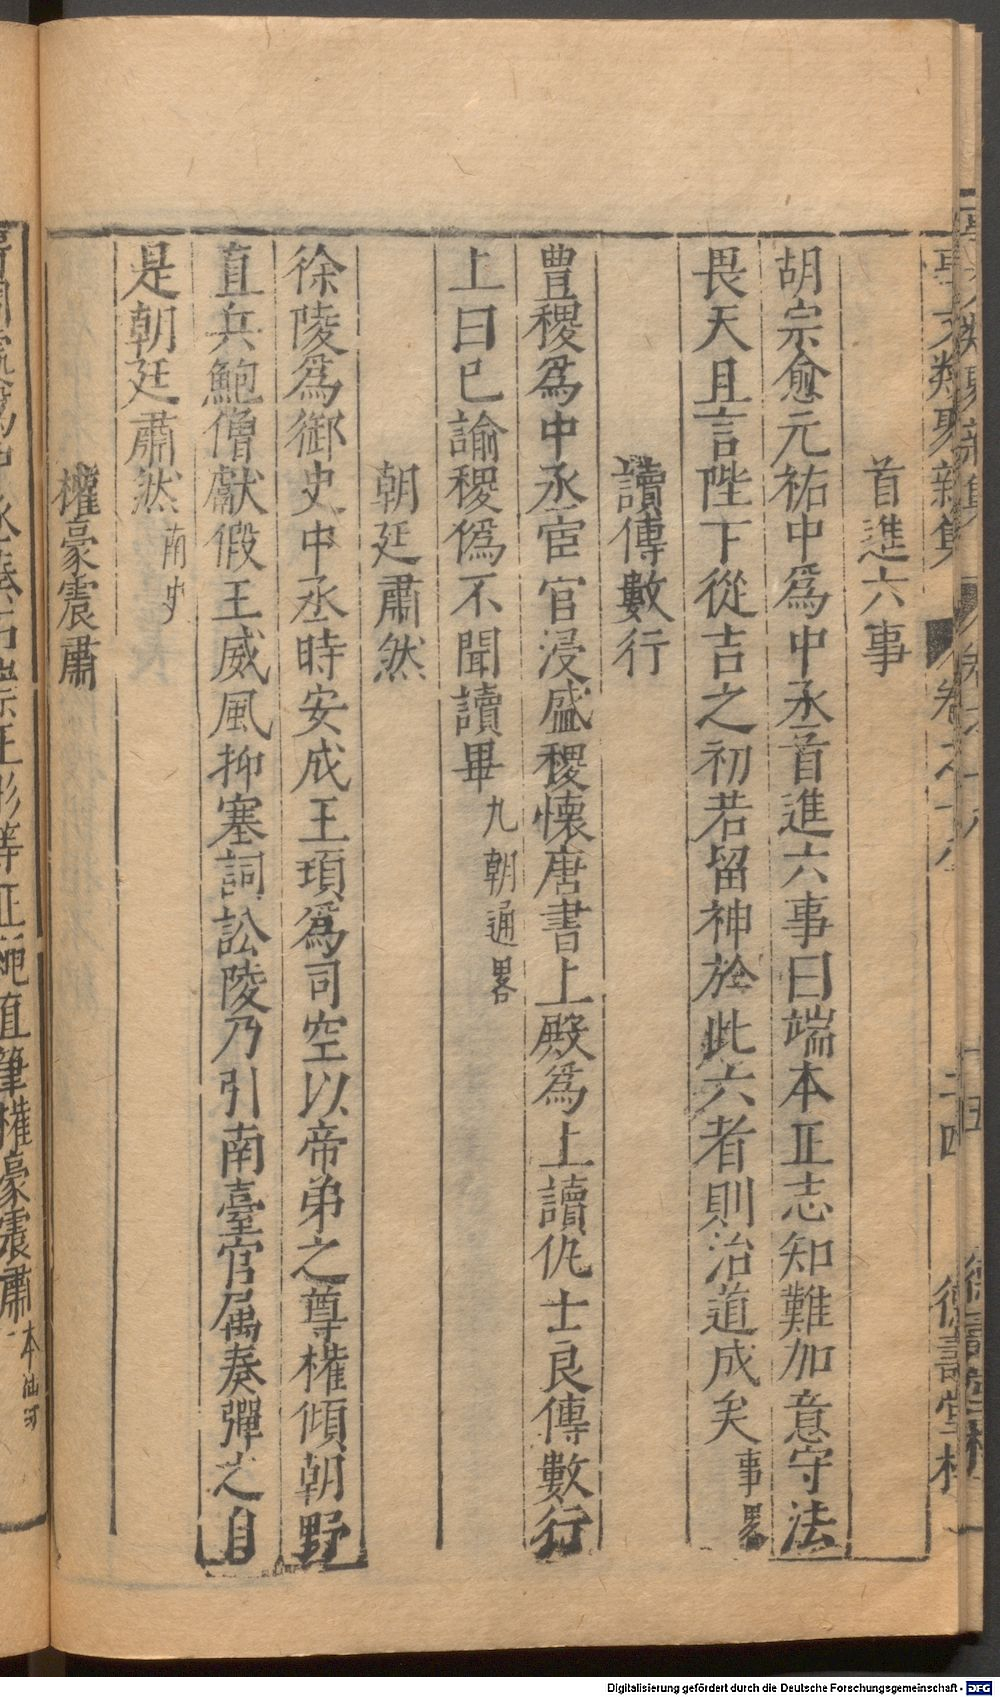 事文類聚新集 卷之十八 二四 德壽堂梓
首進六事
胡宗愈元祐中爲中丞首進六事曰端本正志知難加意守法
畏天且言陛下從吉之初若留神於此六者則治道成矣事畧
讀傳數行
豊稷爲中丞宦官浸盛稷懷唐書上殿爲上讀仇士良傳數行
上曰已諭稷僞不聞讀畢九朝通畧
朝廷肅然
徐陵爲御史中丞時安成王頊爲司空以帝弟之尊權傾朝野
直兵鮑僧獻假王威風抑塞詞訟陵乃引南臺官属奏彈之自
是朝廷肅然南史
權豪震肅
等正範直筆權豪震肅本仙河
Digitalisierung gefördert durch die Deutsche Forschungsgemeinschaft - DFG